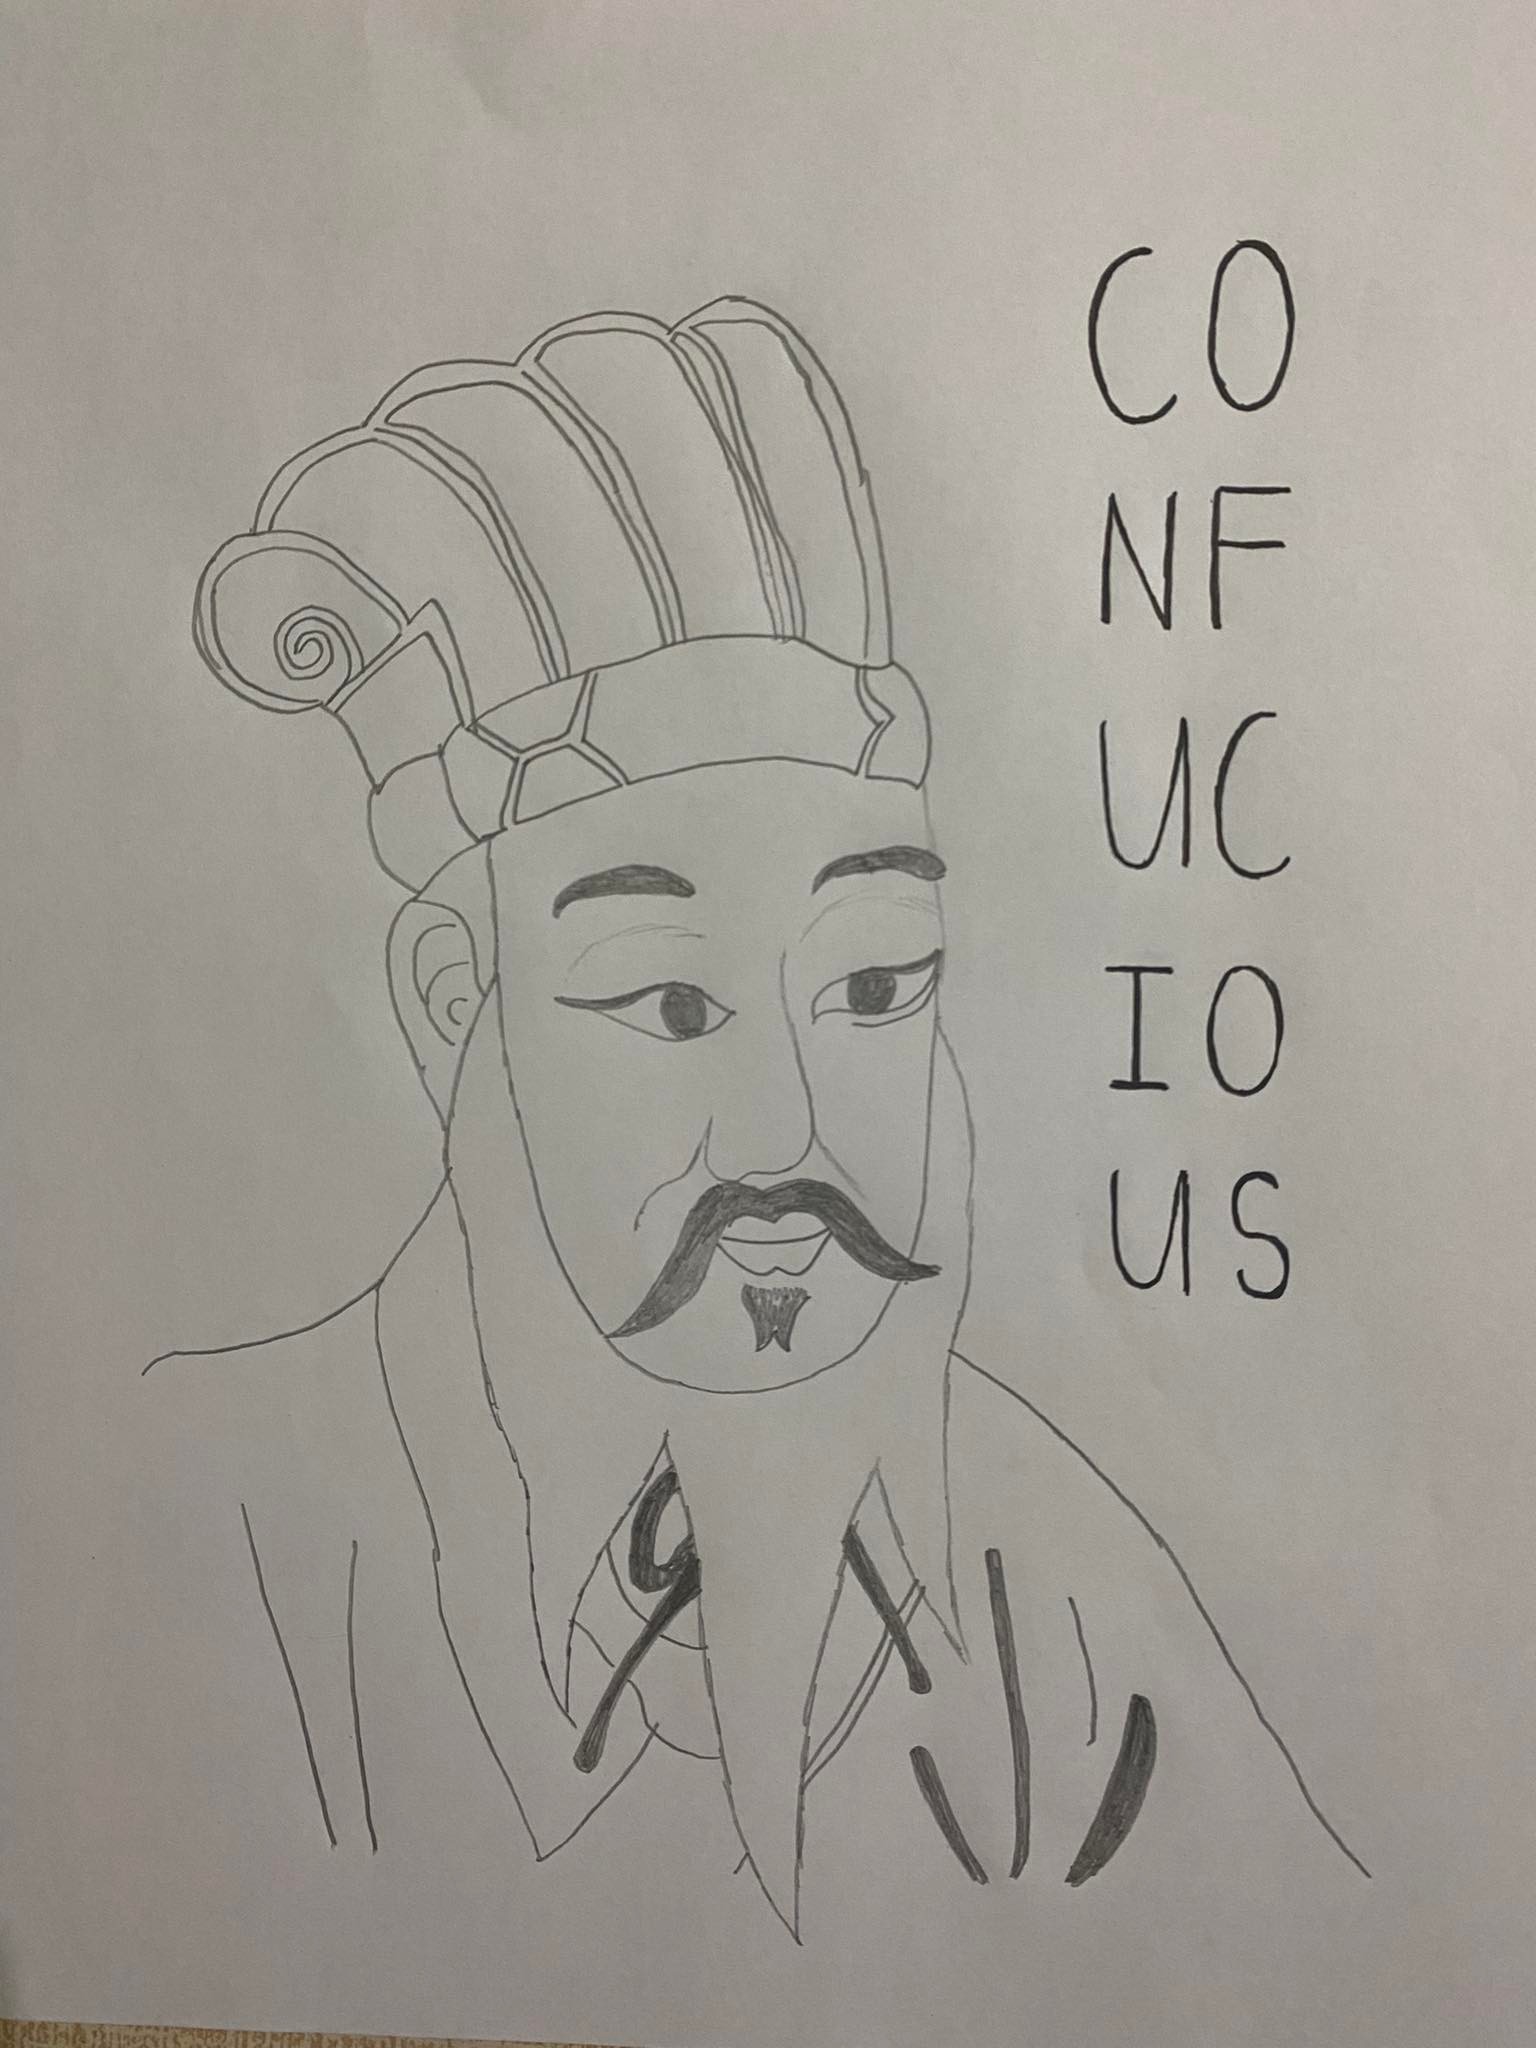 CO
NF
UC
IO
US